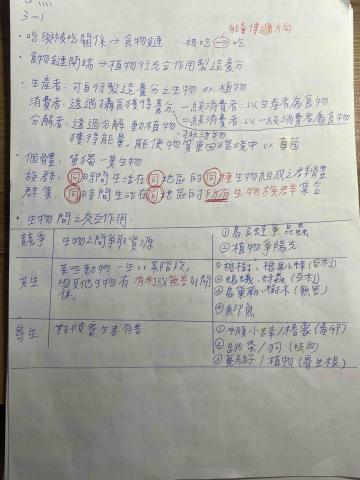 3-1
能量傳遞方向
·吃與被吃關係→食物鏈 被吃→吃
·食物鏈開端→植物行光合作用製造養分
·生產者：可自行製造養分之生物 ex.植物
消費者：透過攝食獲得養分 一級消費者：以生產者為食物
二級消費者：以一級消費者為食物
分解者：透過分解動植物、排泄物
獲得能量，能使物質重回環境中 ex 真菌
·個體：單獨一隻生物
族群：同時間生活在同地區的同種生物組成之群體
群集：同時間生活在同地區的所有生物族群集合
·生物間之交互作用：
競爭 生物之間爭取資源 ①鳥&蛙爭昆蟲
②植物爭陽光
共生 某些動物一生or某階段，
與其他生物有有利或無害的關係。
①榕樹、榕果小蜂(互利)
②螞蟻、蚜蟲(互利)
③鳥巢蕨、樹木(無害)
④鮣魚
寄生 對被寄生者有害
①小蜂/椿象(產卵)
②跳蚤/狗(吸血)
③菟絲子/植物(寄生根)